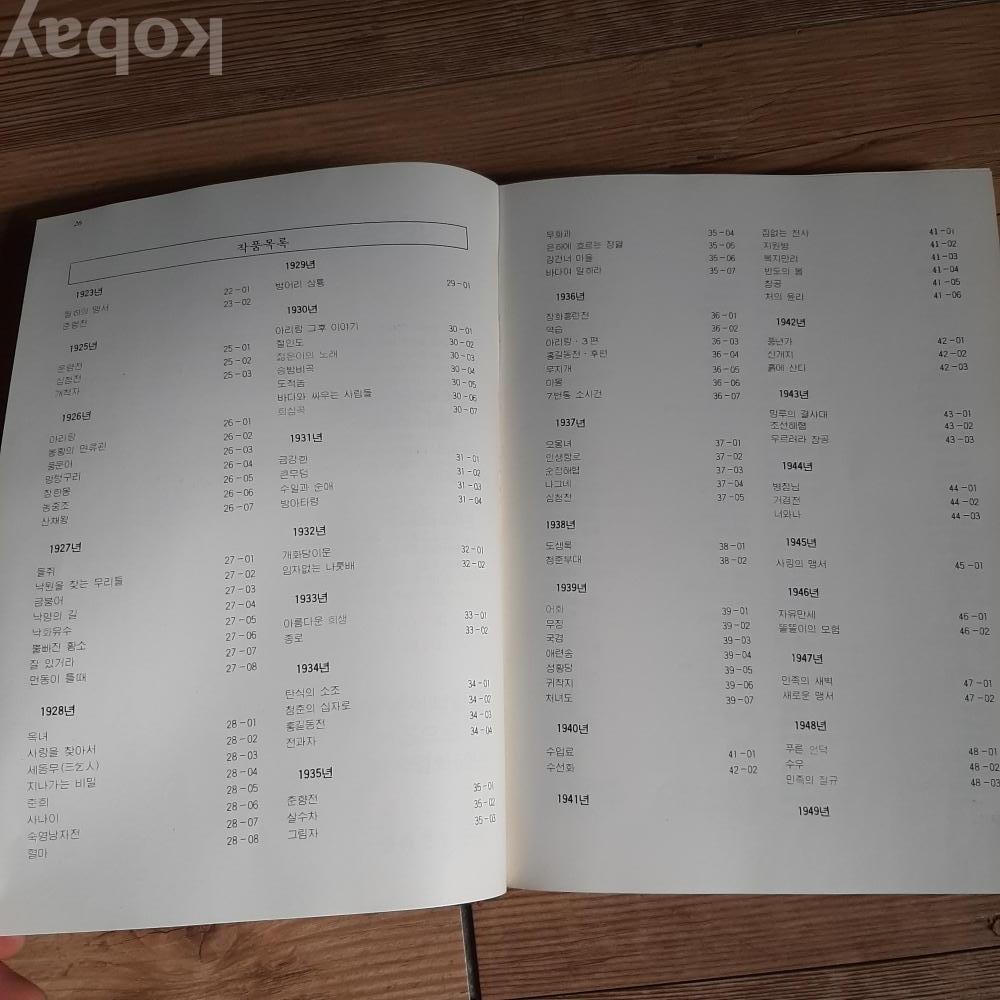 kobay
26
작품목록
1923년
월하의 맹서 22-01
춘향전 23-02
1925년
운영전 25-01
심청전 25-02
개척자 25-03
1926년
아리랑 26-01
봉황의 면류관 26-02
풍운아 26-03
멍텅구리 26-04
장한몽 26-05
농중조 26-06
산채왕 26-07
1927년
들쥐 27-01
낙원을 찾는 무리들 27-02
금붕어 27-03
낙양의 길 27-04
낙화유수 27-05
뿔빠진 황소 27-06
잘 있거라 27-07
먼동이 틀때 27-08
1928년
옥녀 28-01
사랑을 찾아서 28-02
세동무(三乞人) 28-03
지나가는 비밀 28-04
춘희 28-05
사나이 28-06
숙영낭자전 28-07
혈마 28-08
1929년
벙어리 삼룡 29-01
1930년
아리랑 그후 이야기 30-01
철인도 30-02
젊은이의 노래 30-03
승방비곡 30-04
도적놈 30-05
바다와 싸우는 사람들 30-06
회심곡 30-07
1931년
금강한 31-01
큰무덤 31-02
수일과 순애 31-03
방아타령 31-04
1932년
개화당이문 32-01
임자없는 나룻배 32-02
1933년
아름다운 희생 33-01
종로 33-02
1934년
탄식의 소조 34-01
청춘의 십자로 34-02
홍길동전 34-03
전과자 34-04
1935년
춘향전 35-01
살수차 35-02
그림자 35-03
무화과 35-04
은하에 흐르는 정열 35-05
강건너 마을 35-06
바다여 말하라 35-07
1936년
장화홍련전 36-01
역습 36-02
아리랑·3편 36-03
홍길동전·후편 36-04
무지개 36-05
미몽 36-06
7번통 소사건 36-07
1937년
오몽녀 37-01
인생항로 37-02
순정해협 37-03
나그네 37-04
심청전 37-05
1938년
도생록 38-01
청춘부대 38-02
1939년
어화 39-01
무정 39-02
국경 39-03
애련송 39-04
성황당 39-05
귀착지 39-06
처녀도 39-07
1940년
수업료 41-01
수선화 42-02
1941년
집없는 천사 41-01
지원병 41-02
복지만리 41-03
반도의 봄 41-04
창공 41-05
처의 윤리 41-06
1942년
풍년가 42-01
신개지 42-02
흙에 산다 42-03
1943년
망루의 결사대 43-01
조선해협 43-02
우르러라 창공 43-03
1944년
병정님 44-01
거경전 44-02
너와나 44-03
1945년
사랑의 맹서 45-01
1946년
자유만세 46-01
똘똘이의 모험 46-02
1947년
민족의 새벽 47-01
새로운 맹서 47-02
1948년
푸른 언덕 48-01
수우 48-02
민족의 절규 48-03
1949년